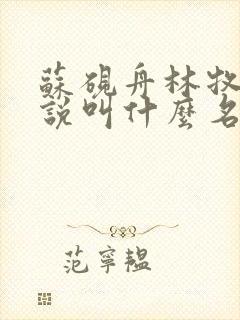 蘇硯舟林牧
說叫什麼名
范寧韞